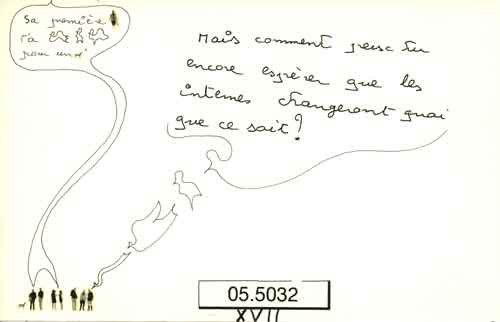 Sa première
t'a
pour un
Mais comment peux tu
encore espérer que les
internes changeront quoi
que ce soit?
05.5032
XVII